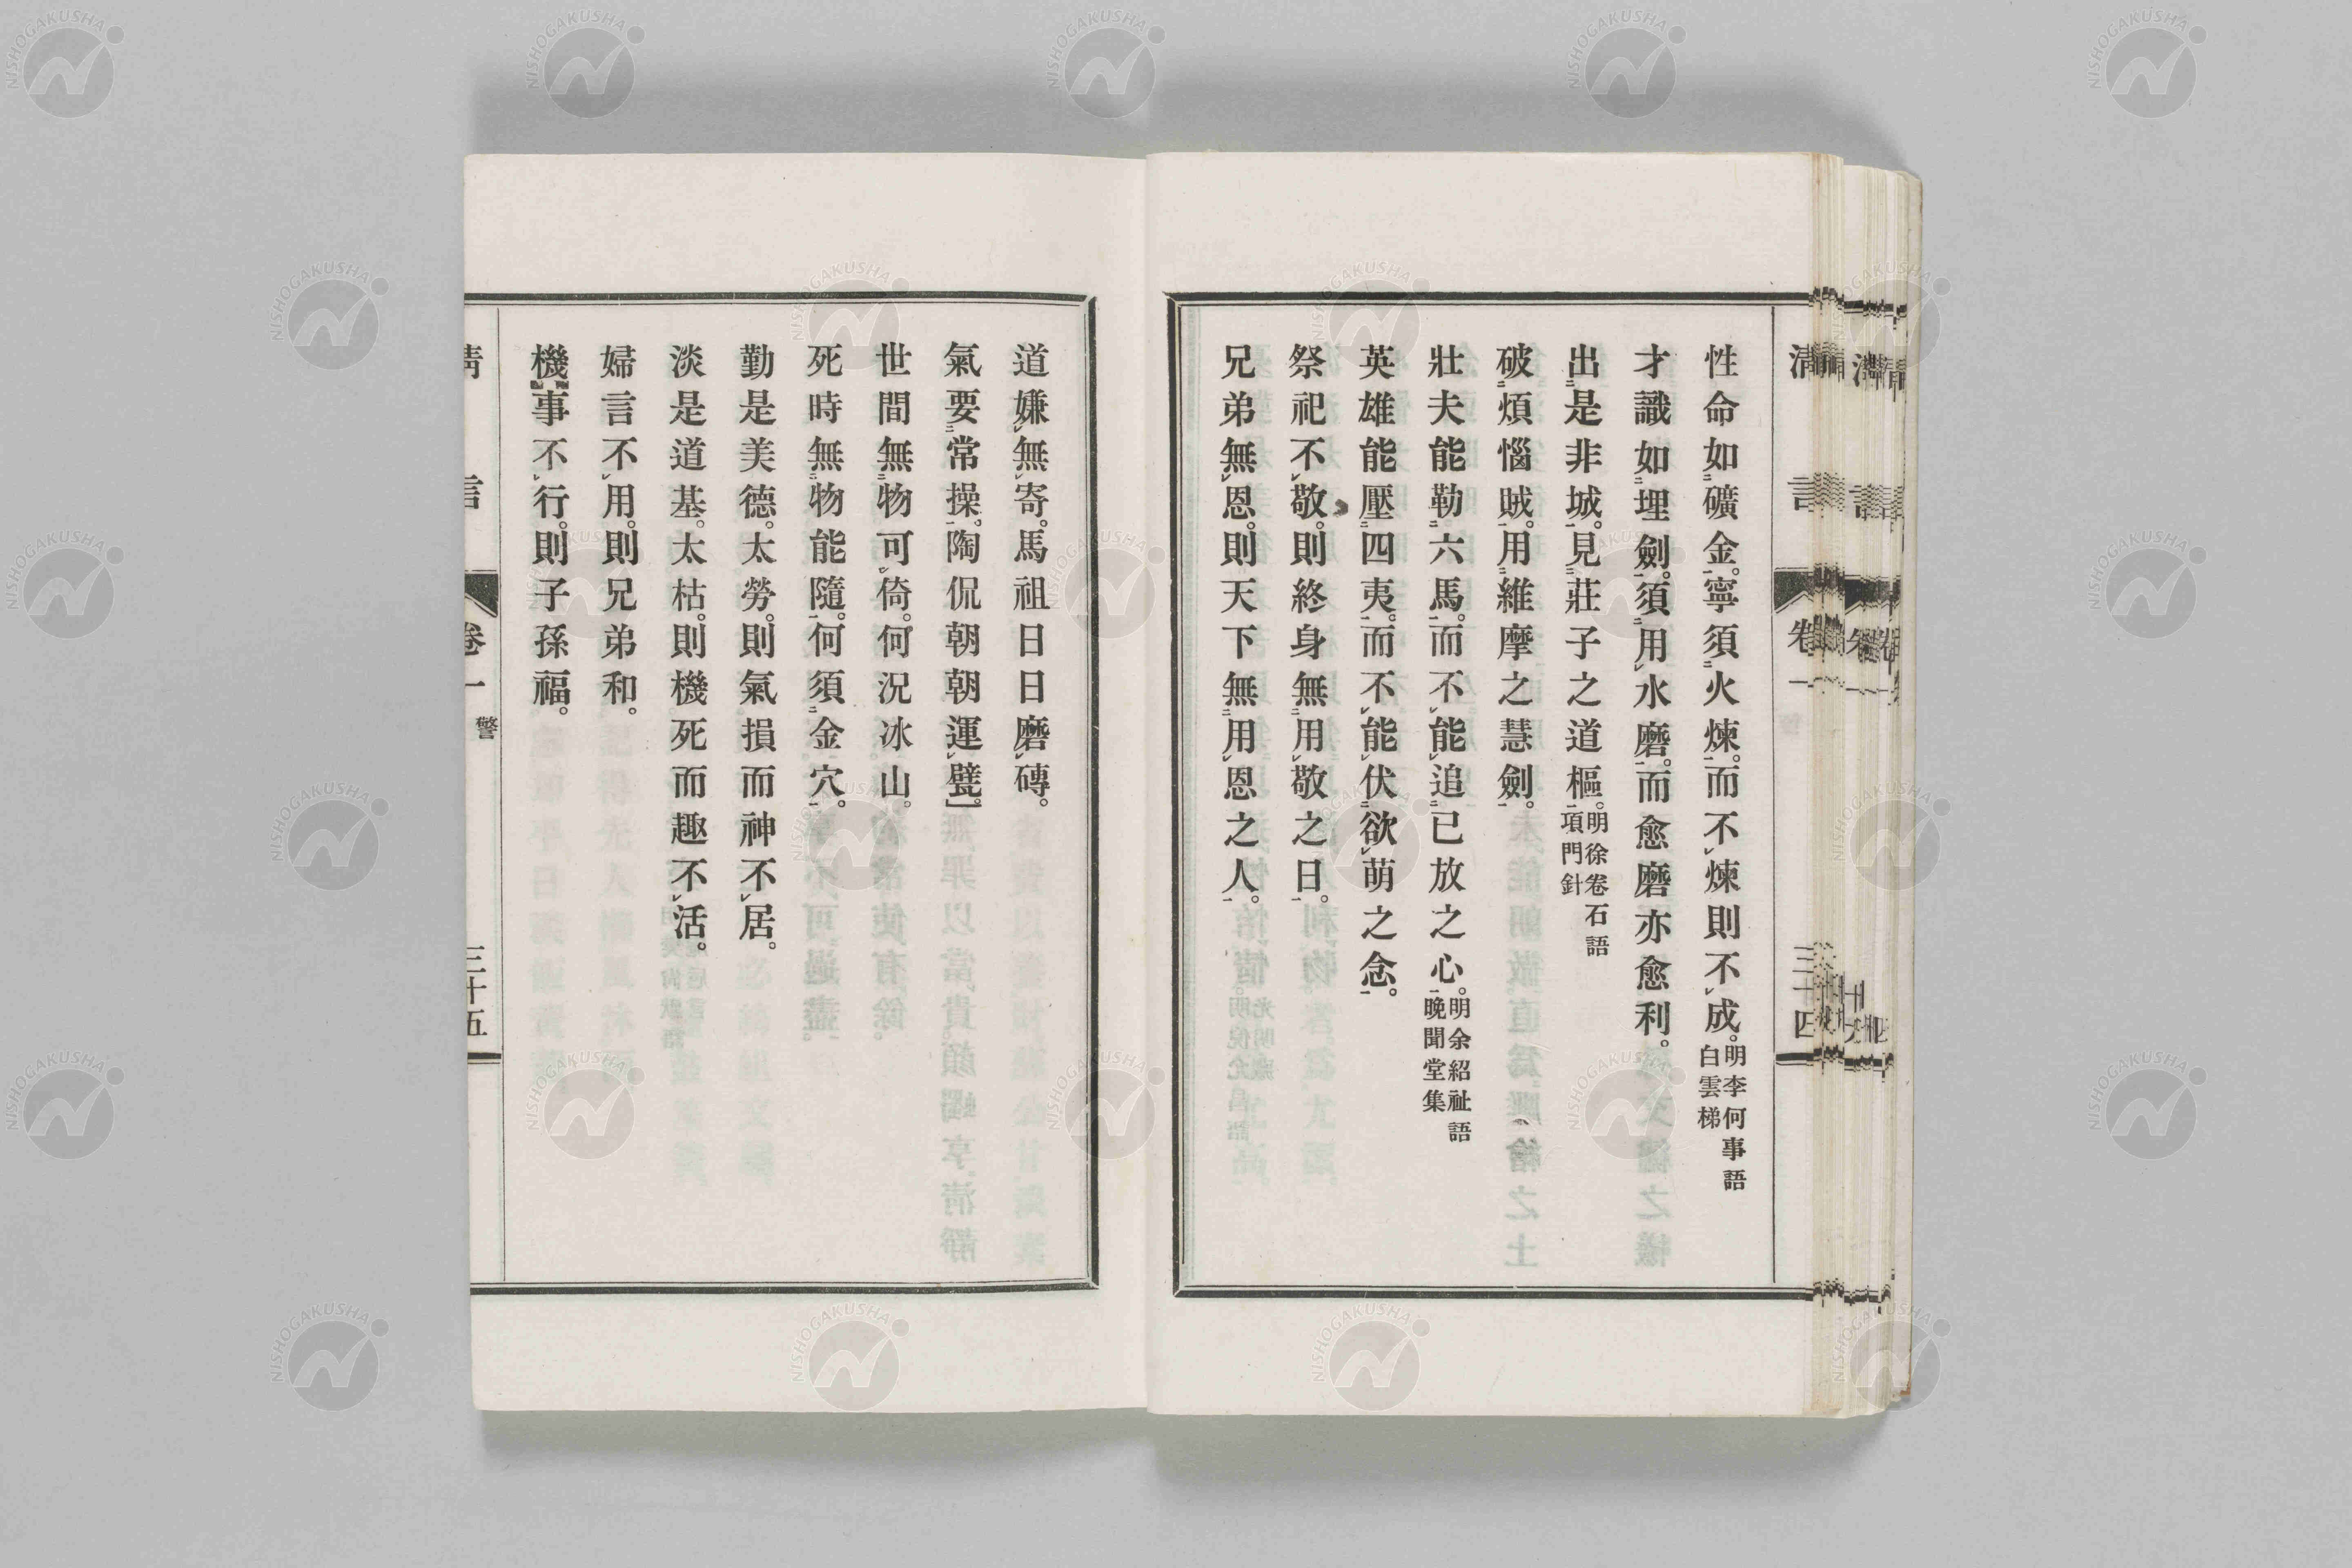 清言 卷一 三十四
性命如礦金。寧須火煉。而不煉則不成。明李何事語白雲梯
才識如埋劍。須用水磨。而愈磨亦愈利。
出是非城。見莊子之道樞。明徐卷石語項門針
破煩惱賊。用維摩之慧劍。
壯夫能勒六馬。而不能追已放之心。明余紹祉語晚聞堂集
英雄能壓四夷。而不能伏欲萌之念。
祭祀不敬。則終身無用敬之日。
兄弟無恩。則天下無用恩之人。
道嫌無寄。馬祖日日磨磚。
氣要常操。陶侃朝朝運甓。
世間無物可倚。何況冰山。
死時無物能隨。何須金穴。
勤是美德。太勞。則氣損而神不居。
淡是道基。太枯。則機死而趣不活。
婦言不用。則兄弟和。
機事不行。則子孫福。
清言 卷一 警 三十五
NISHOGAKUSHA